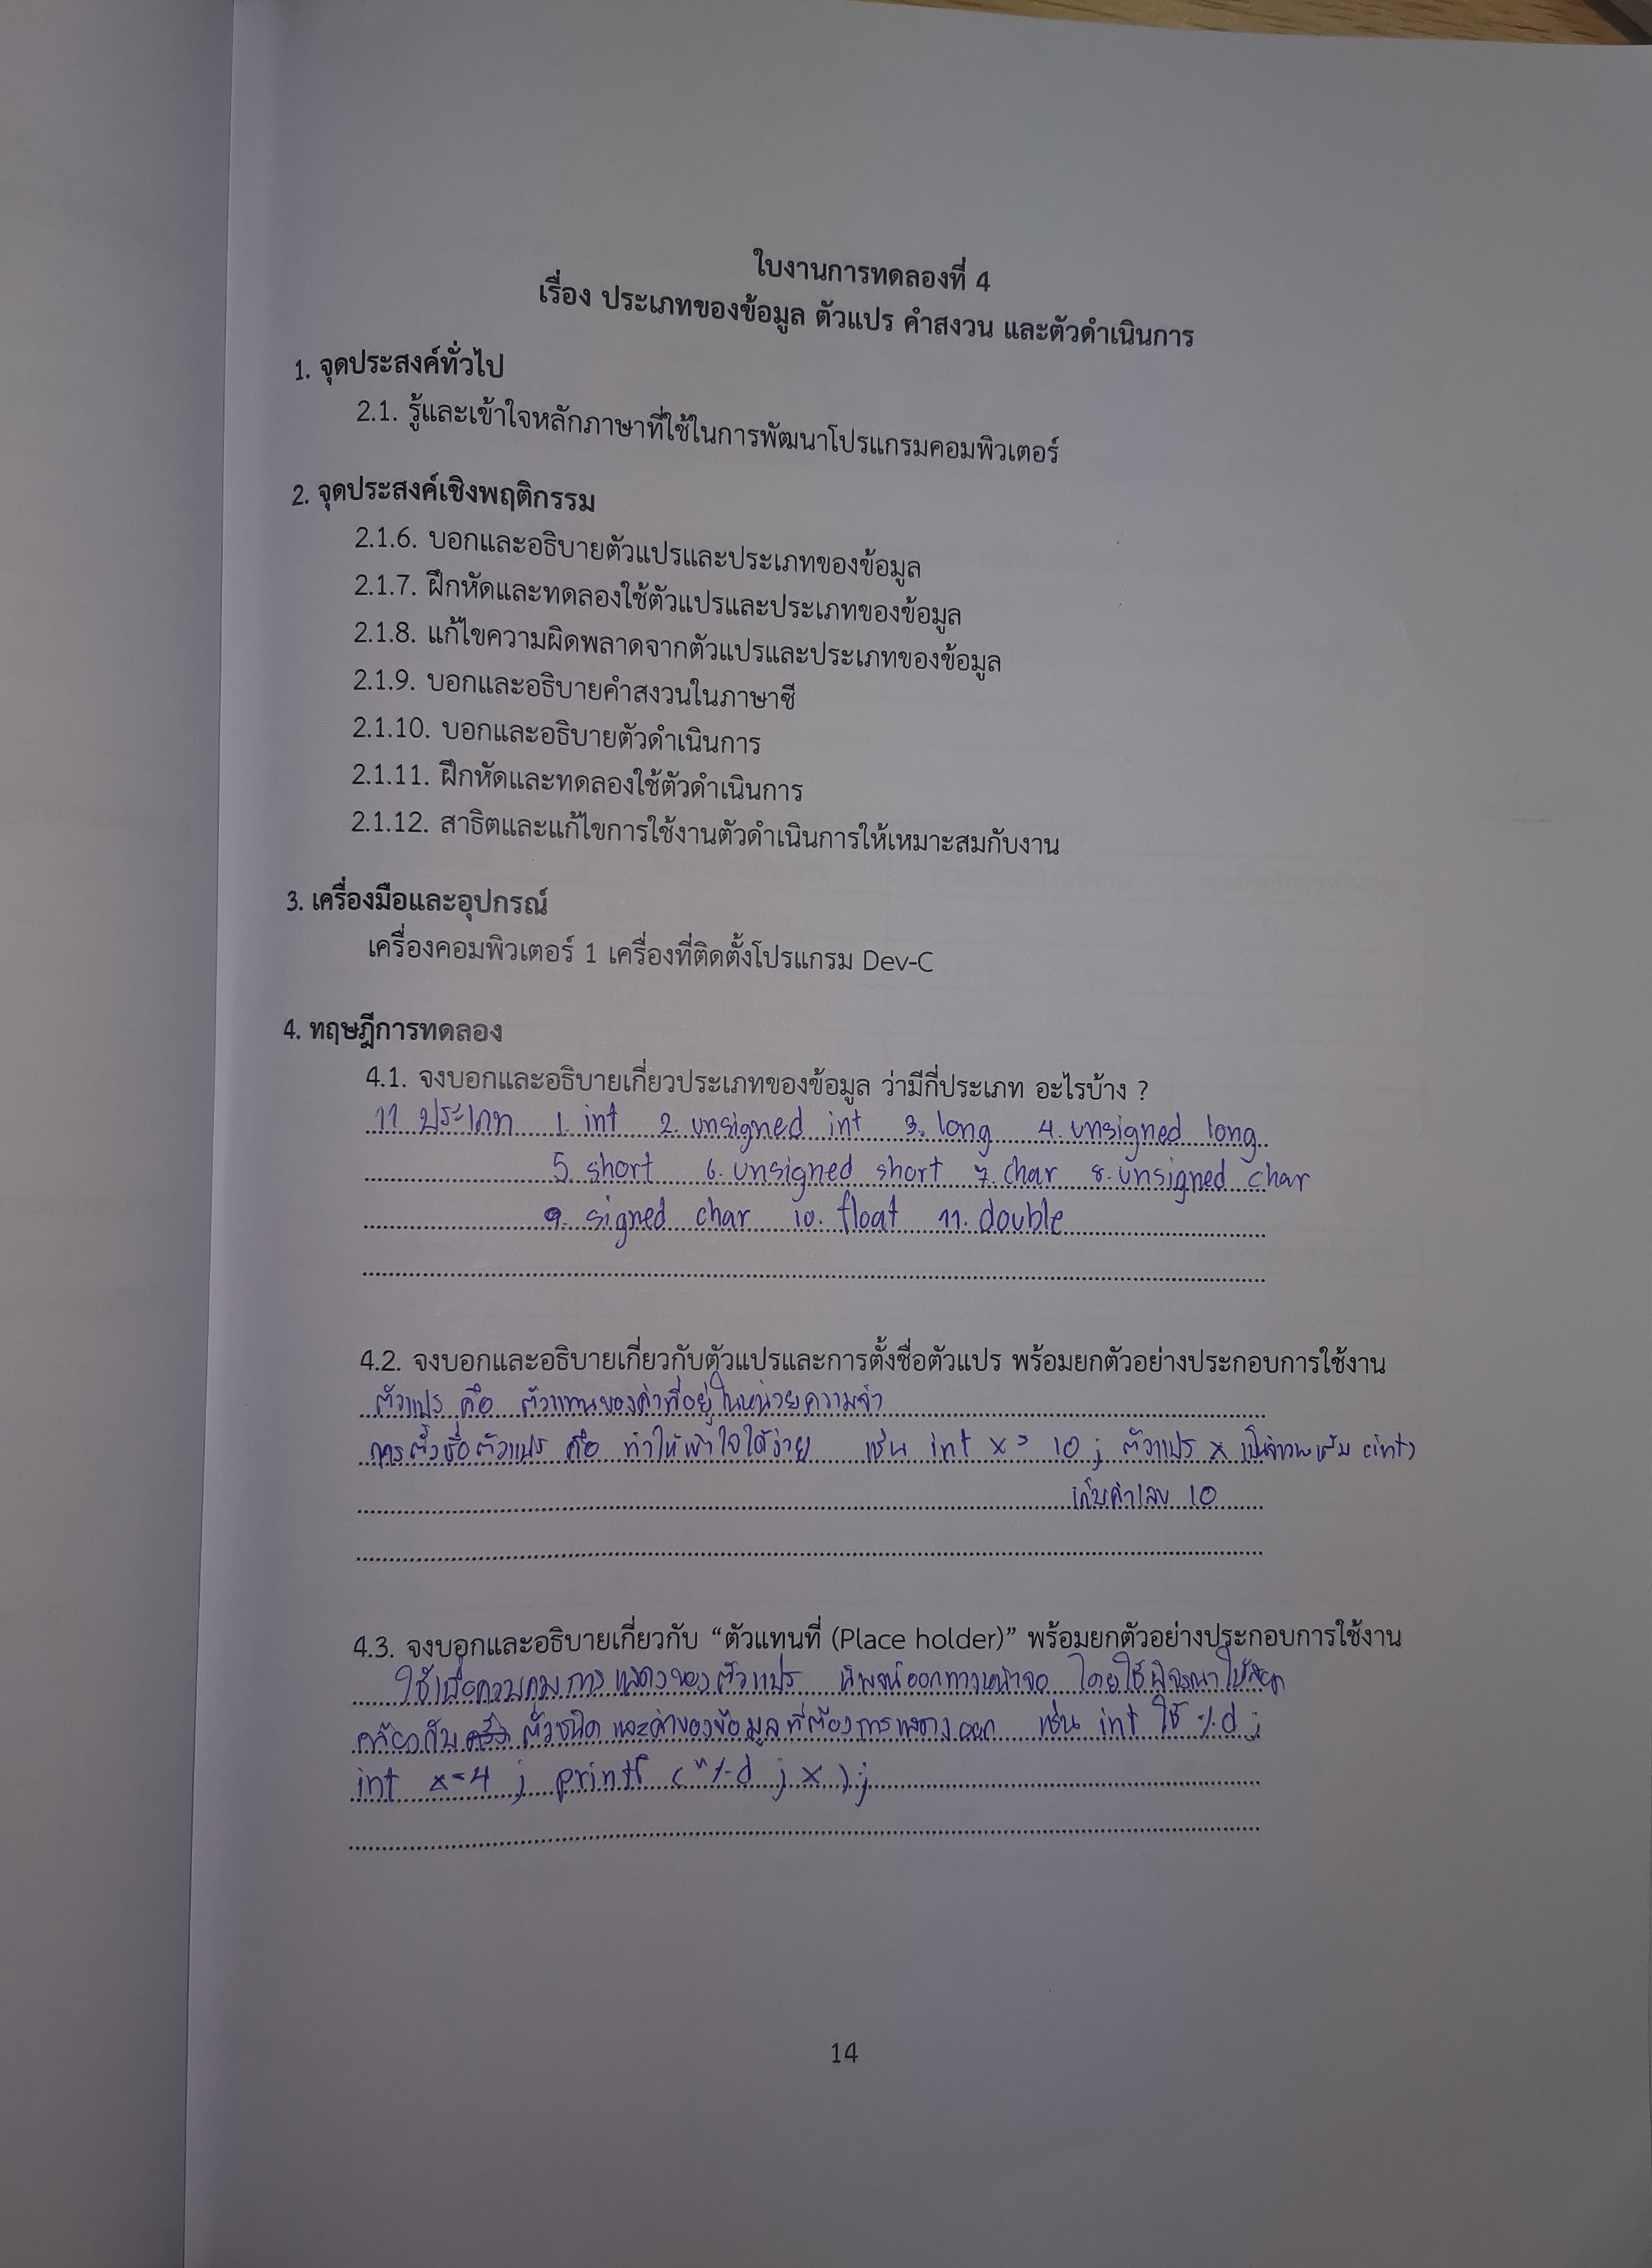 ใบงานการทดลองที่ 4
เรื่อง ประเภทของข้อมูล ตัวแปร คำสงวน และตัวดำเนินการ
1. จุดประสงค์ทั่วไป
2.1. รู้และเข้าใจหลักภาษาที่ใช้ในการพัฒนาโปรแกรมคอมพิวเตอร์
2. จุดประสงค์เชิงพฤติกรรม
2.1.6. บอกและอธิบายตัวแปรและประเภทของข้อมูล
2.1.7. ฝึกหัดและทดลองใช้ตัวแปรและประเภทของข้อมูล
2.1.8. แก้ไขความผิดพลาดจากตัวแปรและประเภทของข้อมูล
2.1.9. บอกและอธิบายคำสงวนในภาษาซี
2.1.10. บอกและอธิบายตัวดำเนินการ
2.1.11. ฝึกหัดและทดลองใช้ตัวดำเนินการ
2.1.12. สาธิตและแก้ไขการใช้งานตัวดำเนินการให้เหมาะสมกับงาน
3. เครื่องมือและอุปกรณ์
เครื่องคอมพิวเตอร์ 1 เครื่องที่ติดตั้งโปรแกรม Dev-C
4. ทฤษฎีการทดลอง
4.1. จงบอกและอธิบายเกี่ยวประเภทของข้อมูล ว่ามีกี่ประเภท อะไรบ้าง ?
11 ประเภท 1. int 2. unsigned int 3. long 4. unsigned long
5. short 6. unsigned short 7. char 8. unsigned char
9. signed char 10. float 11. double
4.2. จงบอกและอธิบายเกี่ยวกับตัวแปรและการตั้งชื่อตัวแปร พร้อมยกตัวอย่างประกอบการใช้งาน
ตัวแปร คือ ตัวแทนของค่าที่อยู่ในหน่วยความจำ
การตั้งชื่อตัวแปร คือ ทำให้เข้าใจได้ง่าย เช่น int x = 10 ; ตัวแปร x เป็นจำนวนเต็ม (int)
เก็บค่าเลข 10
4.3. จงบอกและอธิบายเกี่ยวกับ “ตัวแทนที่ (Place holder)” พร้อมยกตัวอย่างประกอบการใช้งาน
ใช้เพื่อควบคุมการแสดงของตัวแปร นิพจน์ออกทางหน้าจอ โดยใช้พิจารณาให้สอด
คล้องกับ ตัวชนิด และค่าของข้อมูลที่ต้องการแสดงออก เช่น int ใช้ %d ;
int x=4 ; printf ("%d ; x ) ;
14